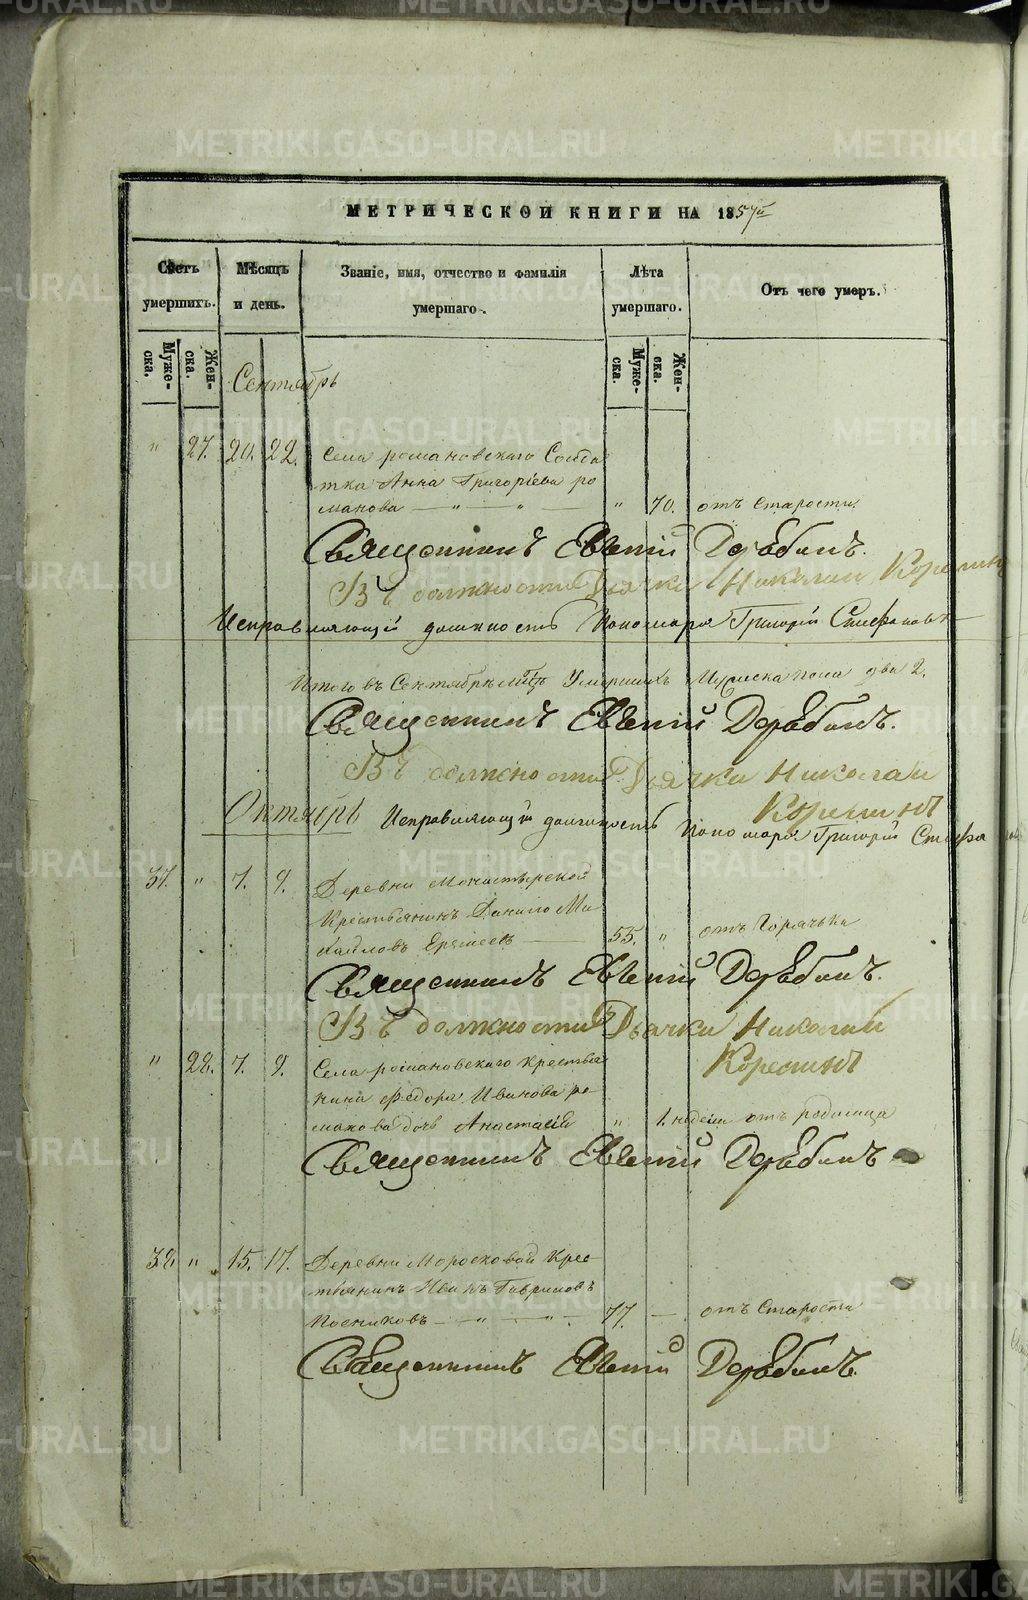 МЕТРИЧЕСКОЙ КНИГИ НА 1857й
Счетъ умершихъ.
Мѣсяцъ и день.
Званіе, имя, отчество и фамилія умершаго.
Лѣта умершаго.
Отъ чего умеръ.
Муже-ска.
Жен-ска.
Муже-ска.
Жен-ска.
Сентябрь
" 27. 20. 22. Села романовскаго Солда
тка Анна Григоріева ро
манова — " — " — " 70. отъ Старости.
Священникъ Евгений Дерябинъ.
Въ должности Дьячка Николай Корелинъ
Исправляющій должность Пономаря Григорій Стефановъ
Итого въ Сентябрѣ м-цѣ Умершихъ пола два 2.
Священникъ Евгений Дерябинъ.
Въ должности Дьячка Николай
Корелинъ
Октябрь Исправляющій должность Пономаря Григорій Стефа
37. " 7. 9. Деревни Монастырской
Крестьянинъ Данило Ми
хайловъ 55. " отъ Горячьки
Священникъ Евгений Дерябинъ.
Въ должности Дьячка Николай
Корелинъ
" 28. 7. 9. Села романовскаго крестья
нина Федора Иванова ро
манова дочь Анастасія " 1. недели отъ родимца
Священникъ Евгений Дерябинъ
38. " 15. 17. Деревни Морозковой Крес
тьянинъ Иванъ Гавриловъ
Посниковъ — " — " — 77. — отъ Старости
Священникъ Евгений Дерябинъ.
METRIKI.GASO-URAL.RU